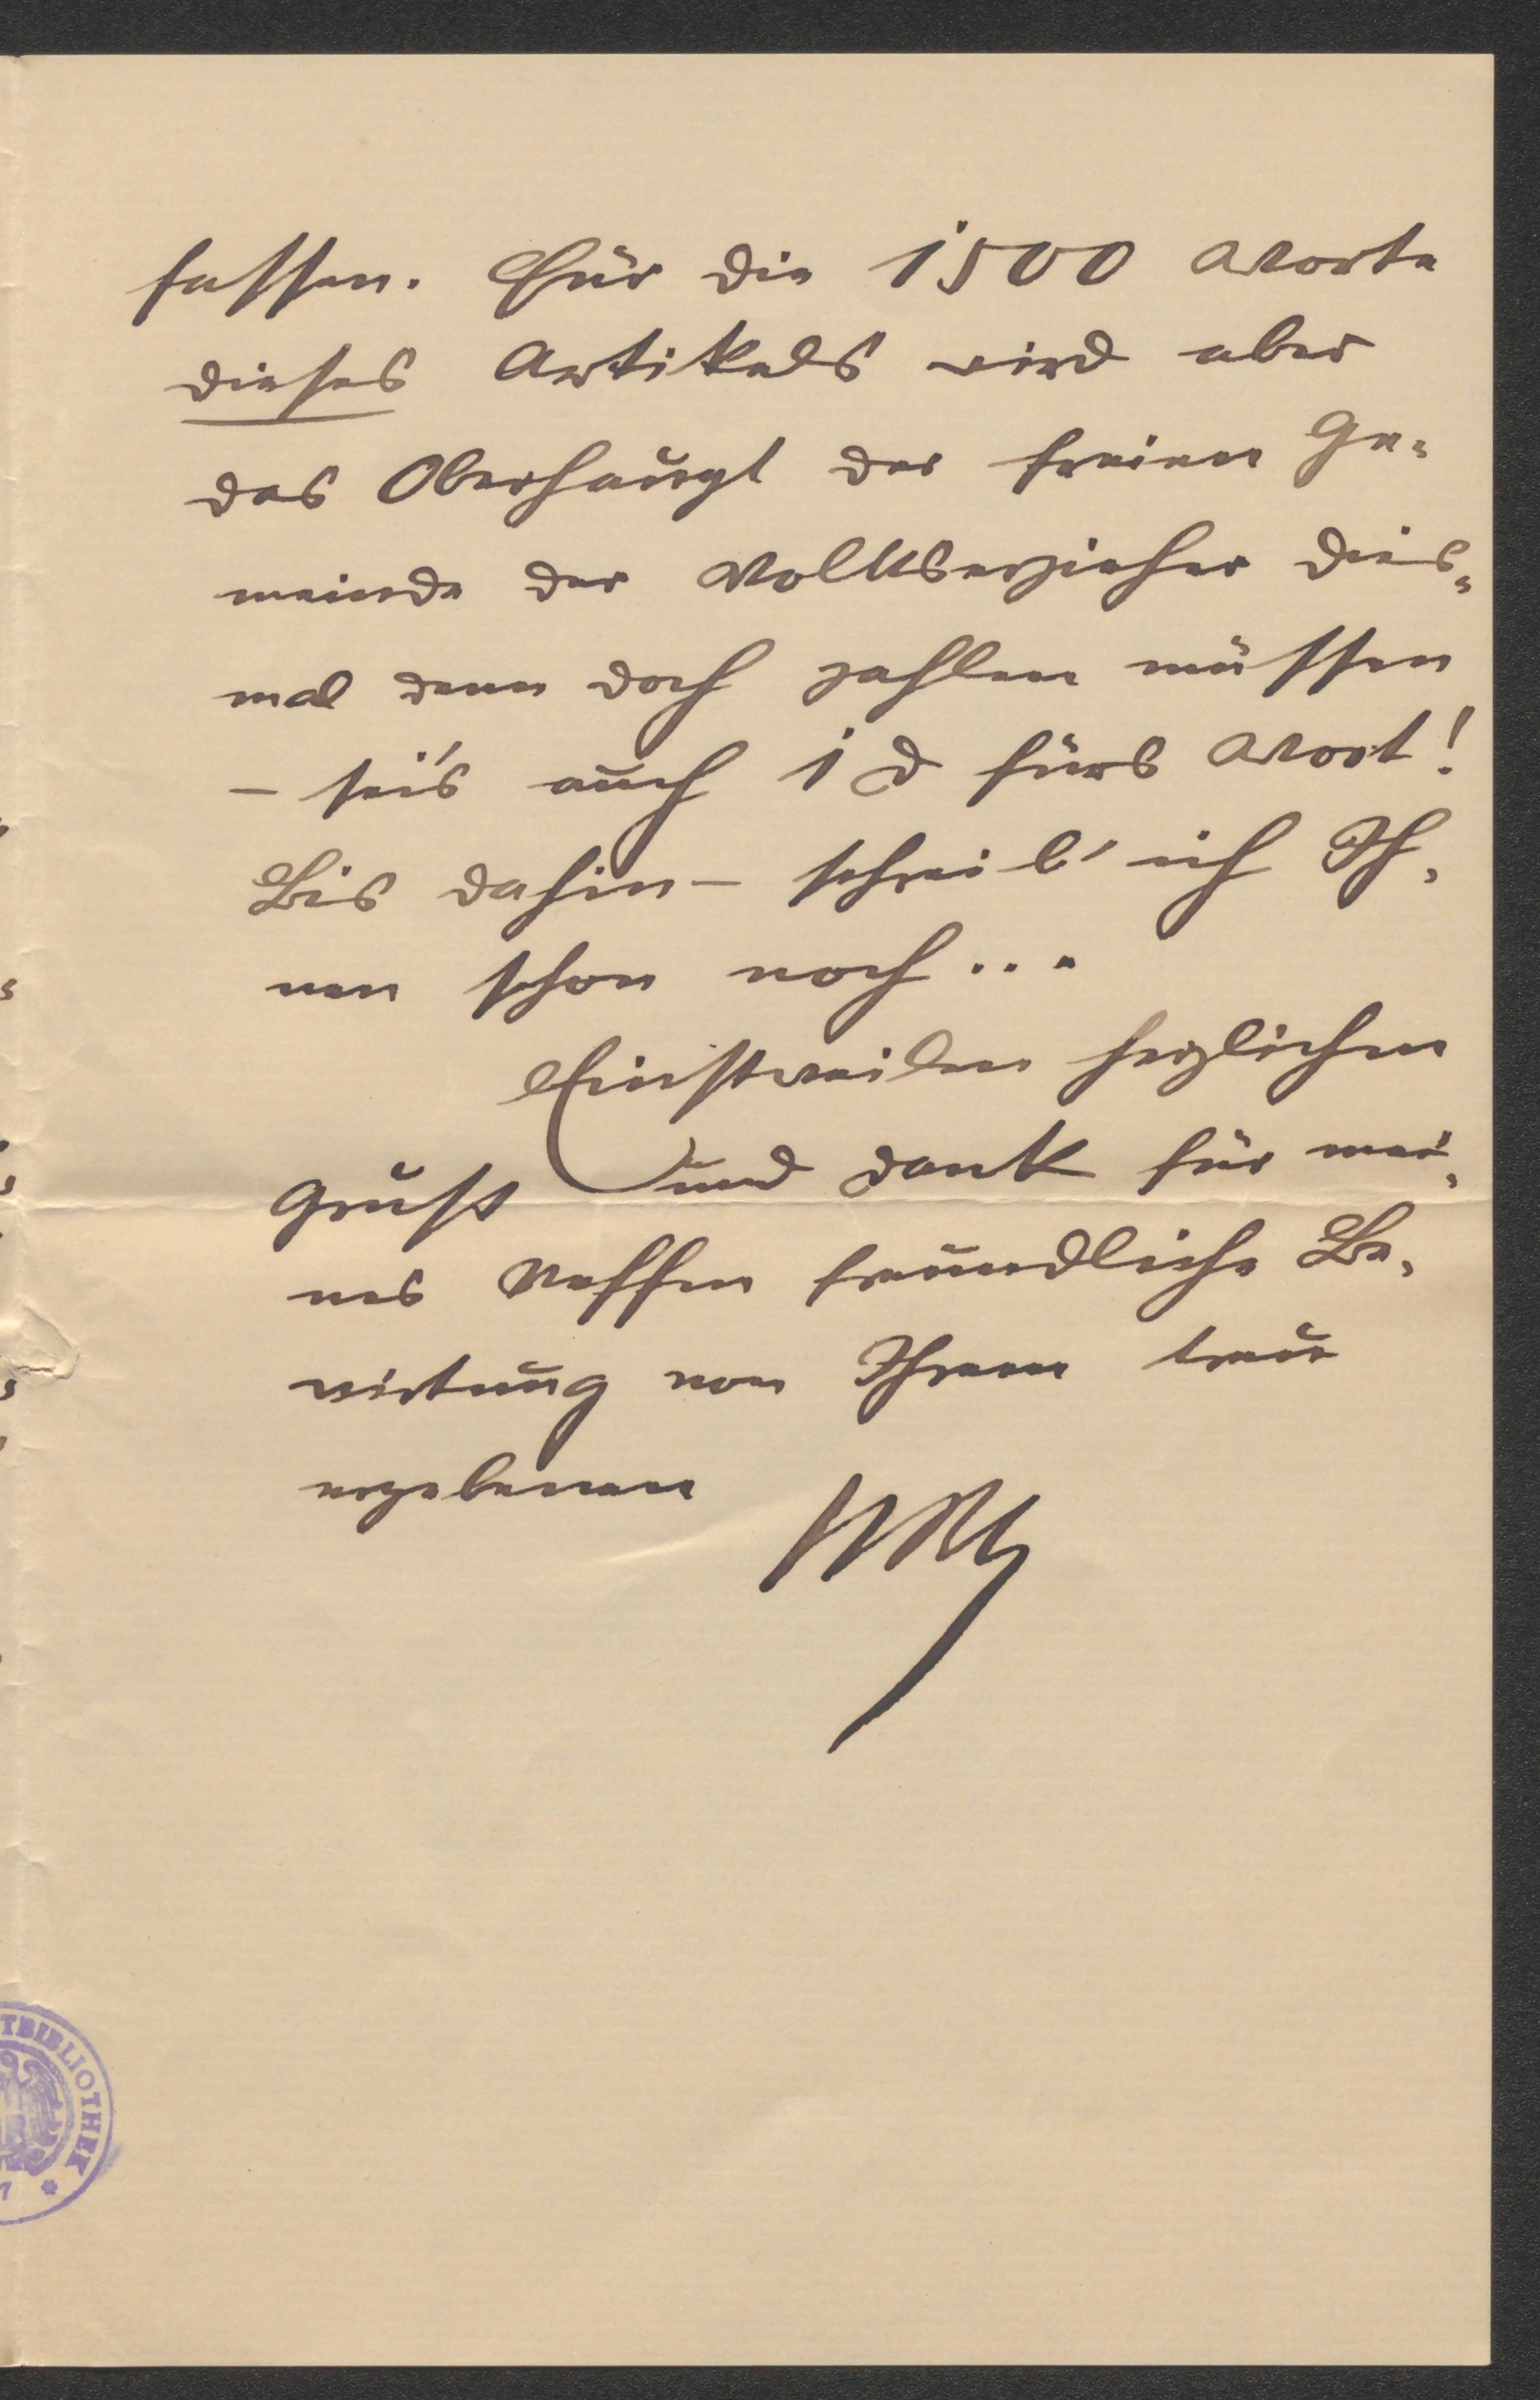 fassen. Für die 1500 Worte
dieses Artikels wird aber
das Oberhaupt der freien Ge-
meinde der Volkserzieher dies-
mal denn doch zahlen müssen
– sei's auch 1 d fürs Wort!
Bis dahin – schreib' ich Ih-
nen schon noch...
Einstweilen herzlichen
Gruß und Dank für mei-
nes Neffen freundliche Be-
wirtung von Ihrem treu
ergebenen
TBIBLIOTHEK
7 *